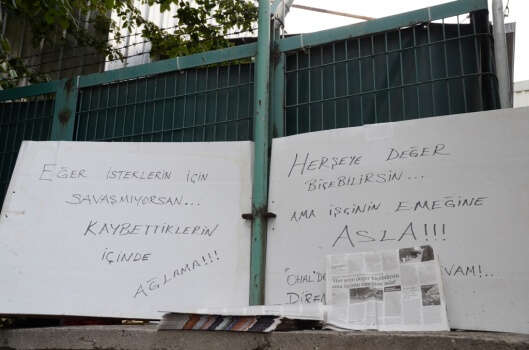 EĞER İSTEKLERİN İÇİN
SAVAŞMIYORSAN...
KAYBETTİKLERİN
İÇİNDE
AĞLAMA!!!
HERŞEYE DEĞER
BİÇEBİLİRSİN...
AMA İŞÇİNİN EMEĞİNE
ASLA!!!
"ÖHAL'D
VAM!..
DİREN